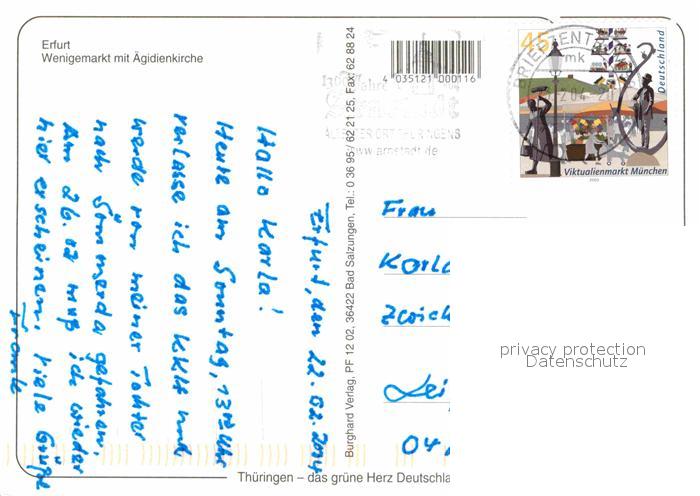 Erfurt
Wenigemarkt mit Ägidienkirche
Erfurt, den 22.02.2004
Hallo Karla!
Heute am Sonntag, 13⁰⁰ Uhr
verlasse ich das KKH und
werde von meiner Tochter
nach Sömmerda gefahren.
Am 26.02 muß ich wieder
hier erscheinen. Viele Grüße
Burghard Verlag, PF 12 02, 36422 Bad Salzungen, Tel.: 0 36 95/ 62 21 25, Fax: 62 88 24
4 035121 000116
ÄLTESTER ORT THÜRINGENS
www.arnstadt.de
BRIEFZENTRUM
mk
45
Deutschland
Viktualienmarkt München
2003
Frau
Karla
Zwick
Lei
04
privacy protection
Datenschutz
Thüringen – das grüne Herz Deutschla